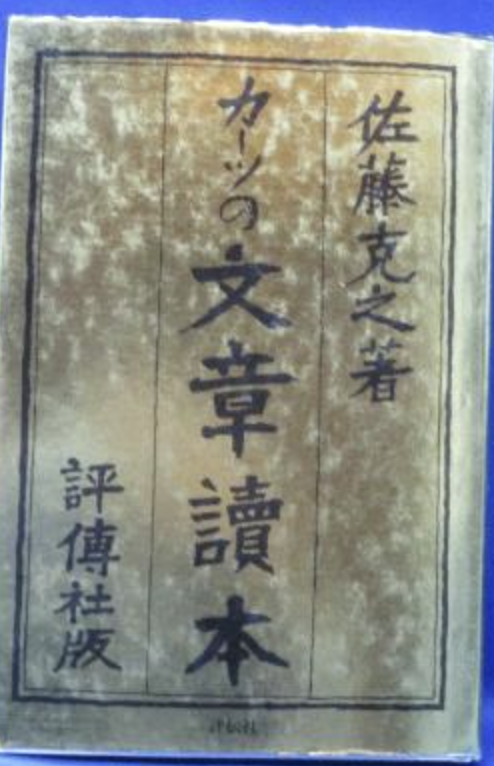 佐藤克之著
カーツの文章讀本
評傳社版